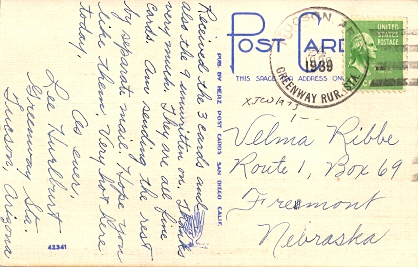 Received the 3 cards and
also the 9 unwritten on. Thanks
very much. They are all fine
cards. Am sending the rest
by separate mail. Hope you
like them. Very hot here
today.
As ever,
Lee Hurlburt
Greenway Sta.
Tucson, Arizona
42341
PUB. BY HERZ POST CARDS SAN DIEGO CALIF.
POST CARD
THIS SPACE ADDRESS ON
TUCSON
1939
GREENWAY RUR. STA.
UNITED
STATES
POSTAGE
Velma Ribbe
Route 1, Box 69
Fremont
Nebraska